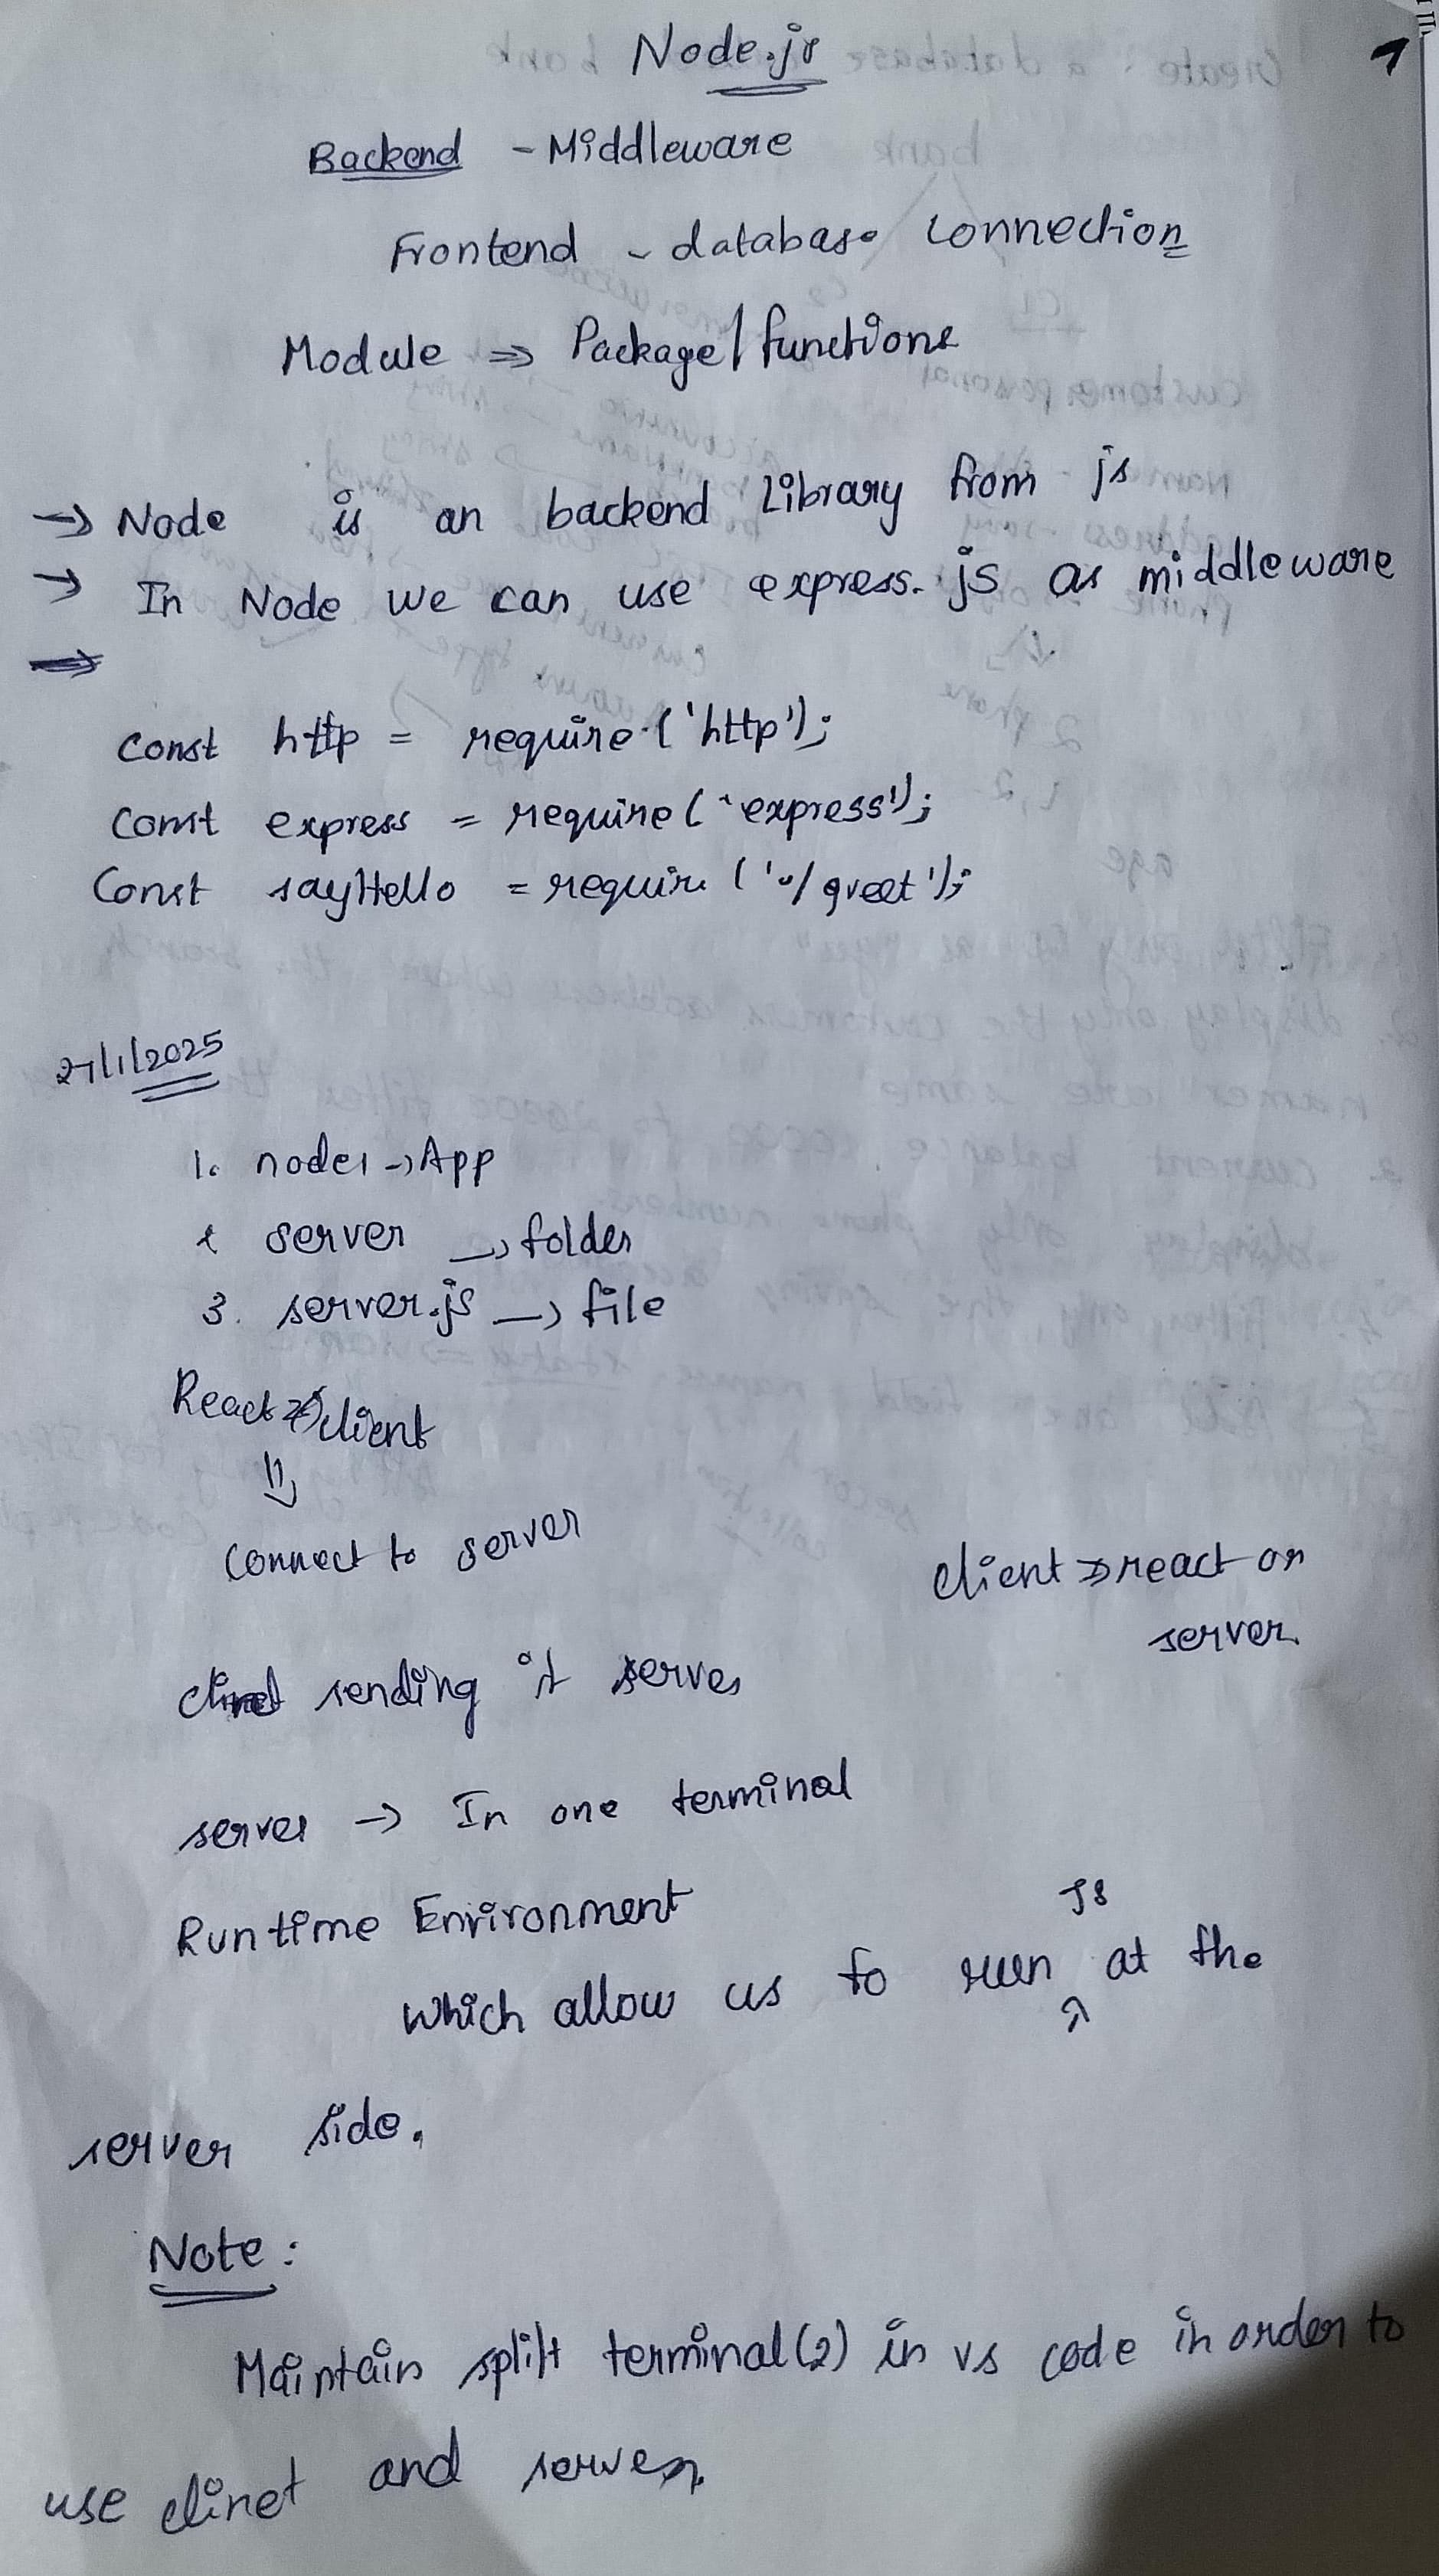 Node.js
1
Backend - Middleware
Frontend - database connection
Module => Package/functions
-> Node is an backend Library from js
-> In Node we can use express.js as middleware
=>
const http = require('http');
Const express = require('express');
Const sayHello = require('./greet');
27/1/2025
1. node1 -> App
2 server -> folder
3. server.js -> file
React => client
Connect to server
client => react or
server.
sending it server
server -> In one terminal
Runtime Environment
Which allow us to run JS at the
server side.
Note:
Maintain split terminal(2) in vs code in order to
use clinet and server.